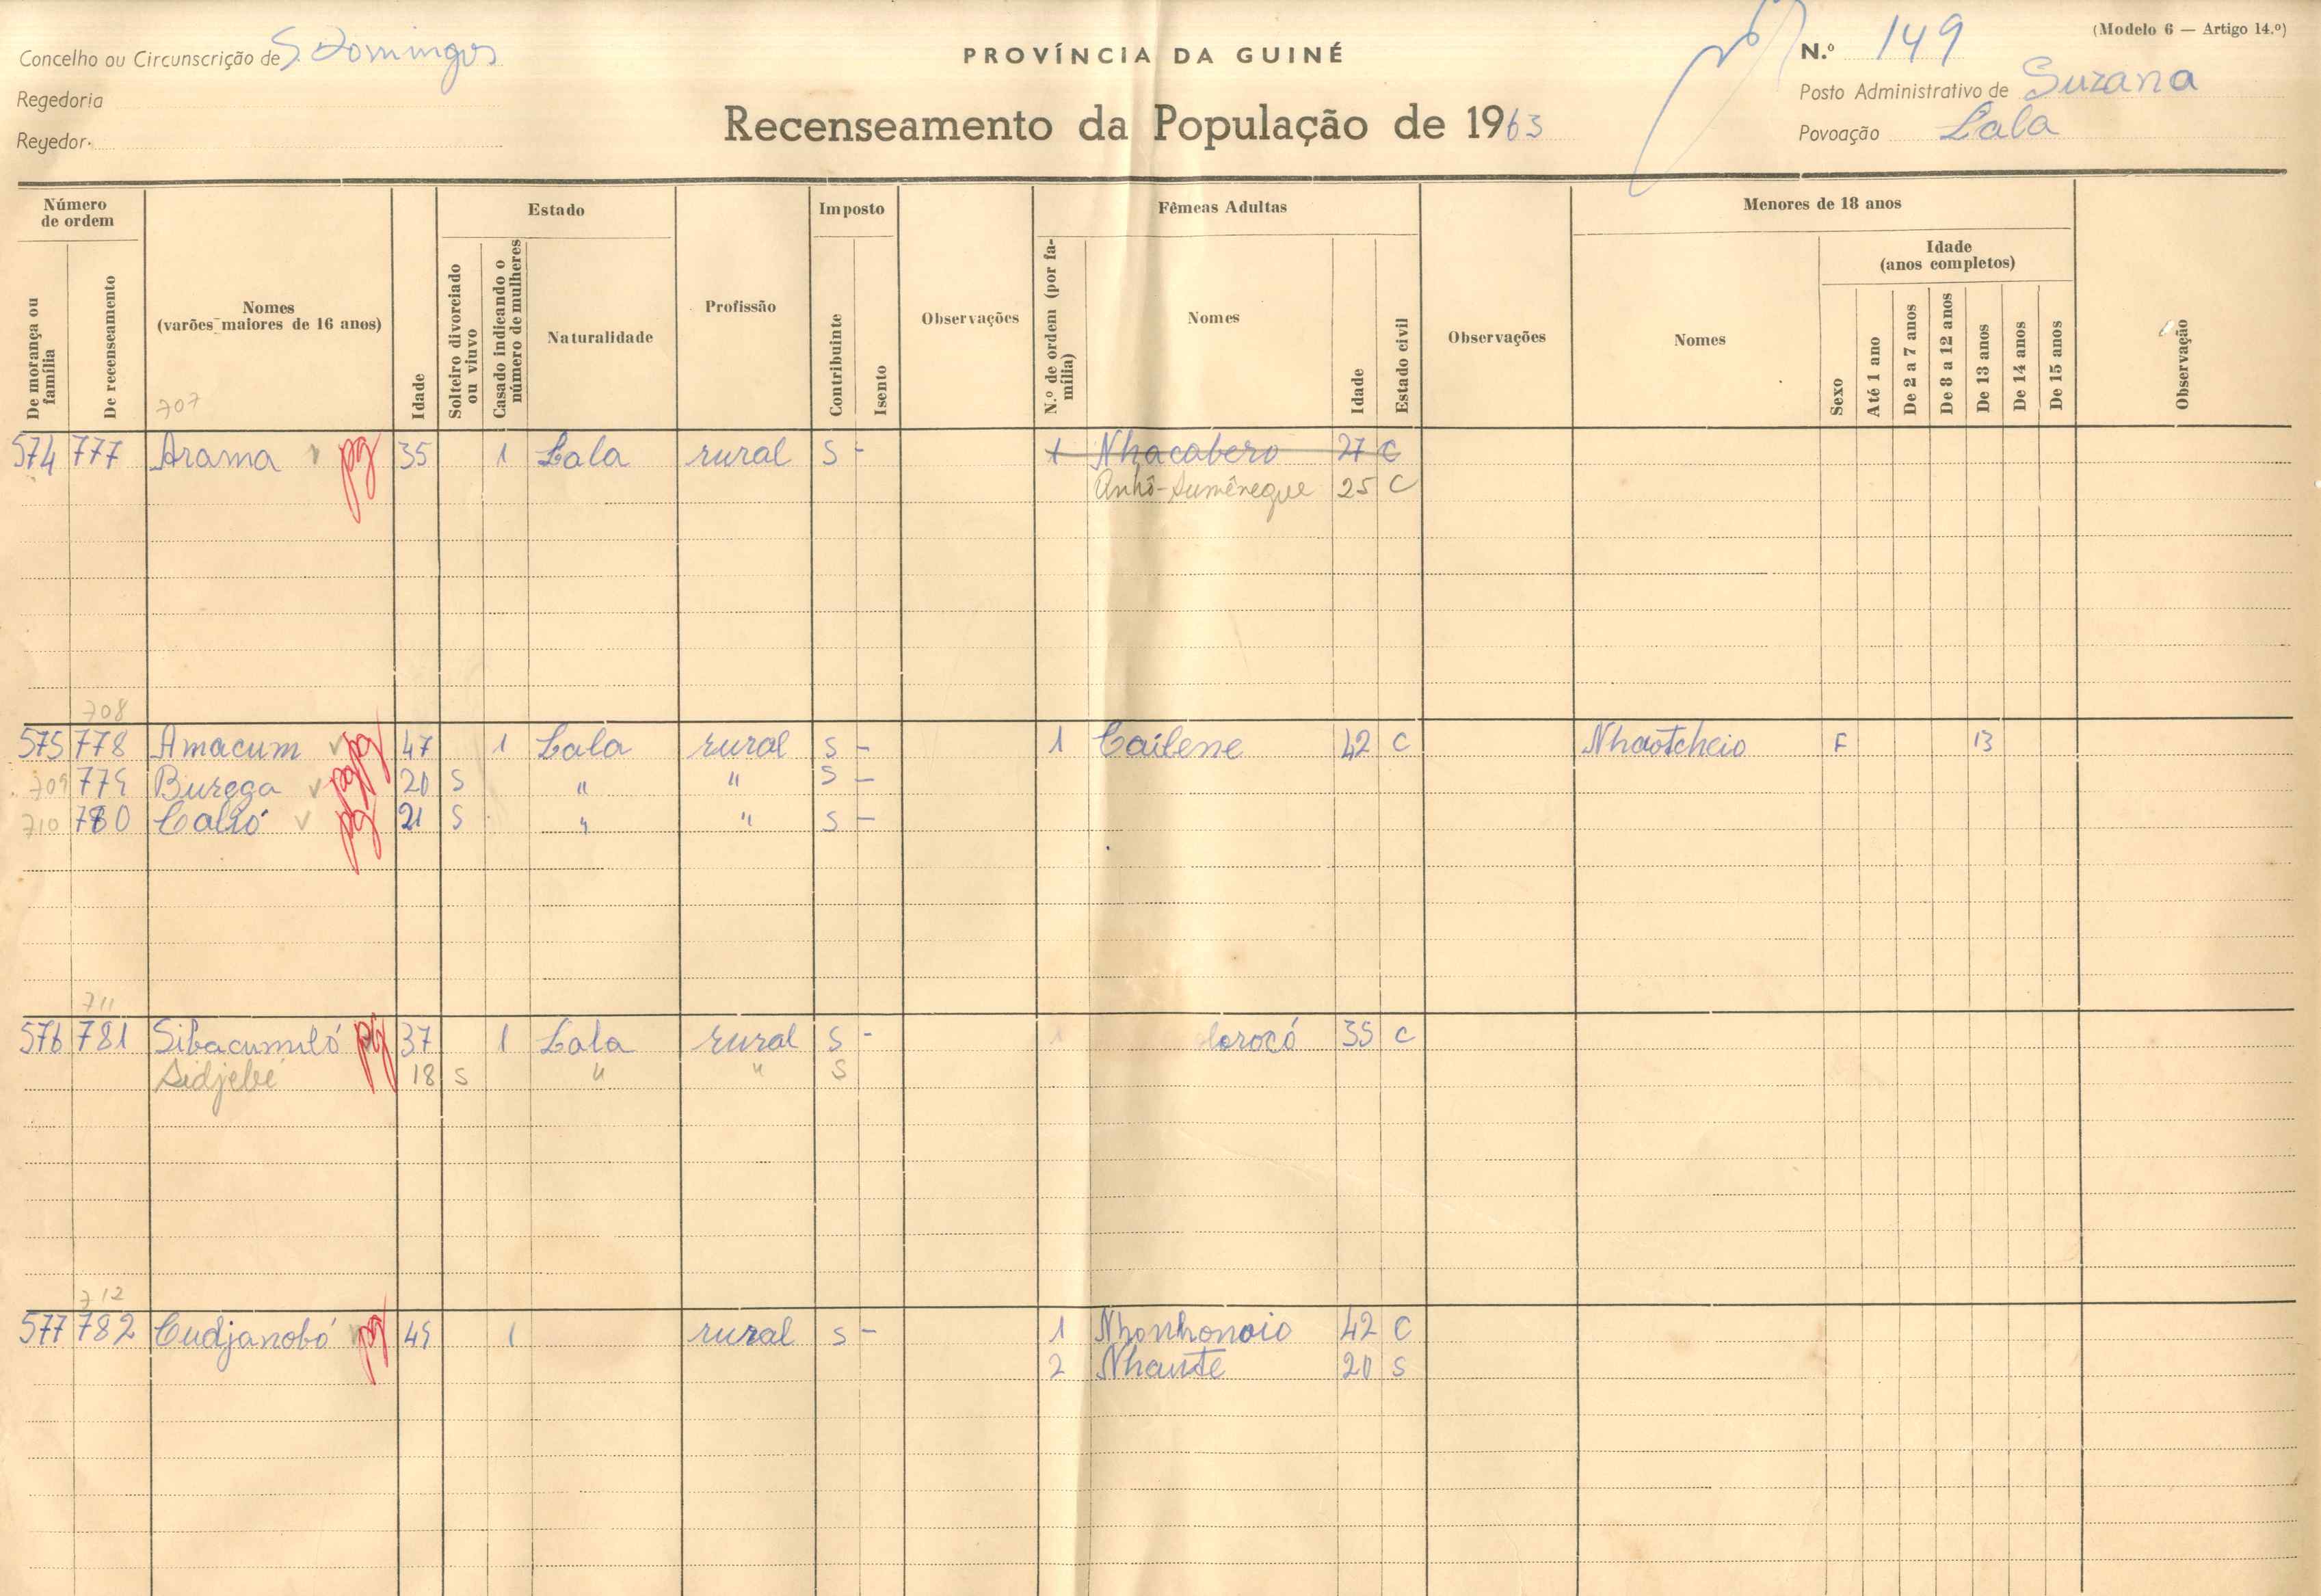 Concelho ou Circunscrição de S. Domingos
PROVÍNCIA DA GUINÉ
N.º 149
(Modelo 6 — Artigo 14.º)
Regedoria
Recenseamento da População de 1963
Posto Administrativo de Suzana
Reyedor
Povoação Lala
Número de ordem
De morança ou família
De recenseamento
Nomes (varões maiores de 16 anos)
707
Idade
Estado
Solteiro divorciado ou viuvo
Casado indicando o número de mulheres
Naturalidade
Profissão
Imposto
Contribuinte
Isento
Observações
Fêmeas Adultas
N.º de ordem (por família)
Nomes
Idade
Estado civil
Observações
Menores de 18 anos
Nomes
Sexo
Idade (anos completos)
Até 1 ano
De 2 a 7 anos
De 8 a 12 anos
De 13 anos
De 14 anos
De 15 anos
Observação
574 777 Arama pg 35 1 Lala rural S - 1 Nhacabero 27 C
Anhô-Sumêneque 25 C
708
575 778 Amacum pg 47 1 Lala rural S - 1 Cailene 42 C Nhaotcheio F 13
709 779 Burega pg 20 S " " S -
710 780 pg 21 S " " S -
711
576 781 Sibacumuló pg 37 1 Lala rural S - 35 C
Sidjebé 18 S " " S
712
577 782 Cudjanobó pg 1 rural S - 1 Nhonhonoio 42 C
2 Nhaute 20 S